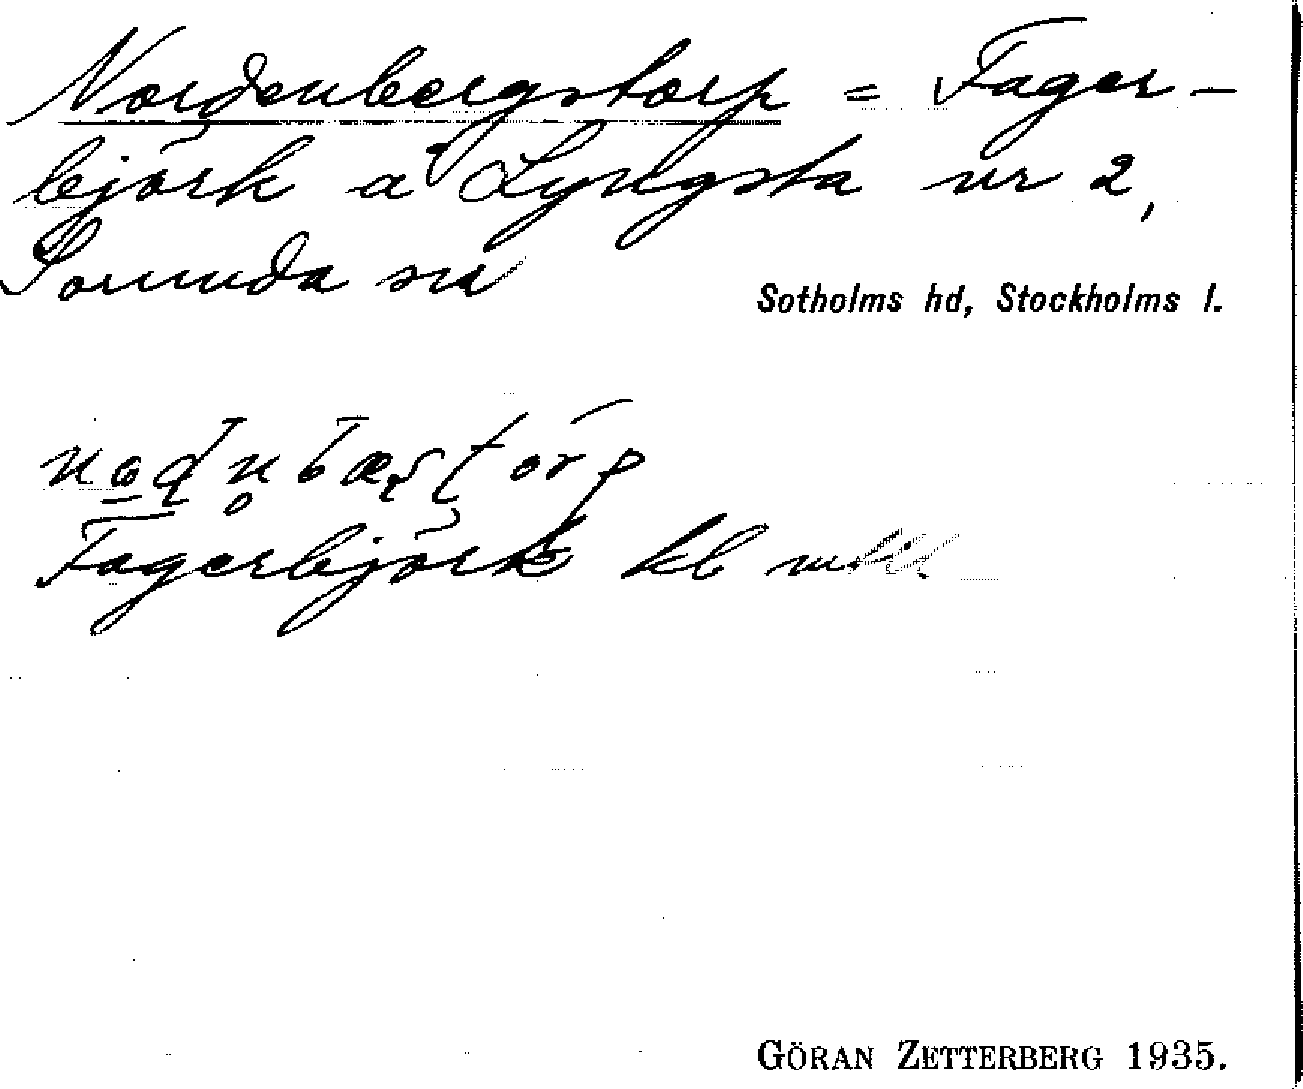 Nordenbergstorp = Fager-
björk å Lyngsta nr 2,
Sorunda sn
Sotholms hd, Stockholms l.
Fagerbjörk kb
GÖRAN ZETTERBERG 1935.